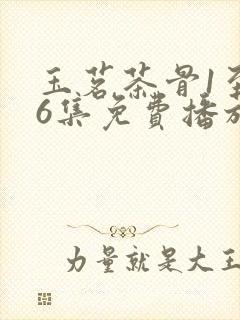 玉茗茶骨1至
6集免費播放
力量就是大王